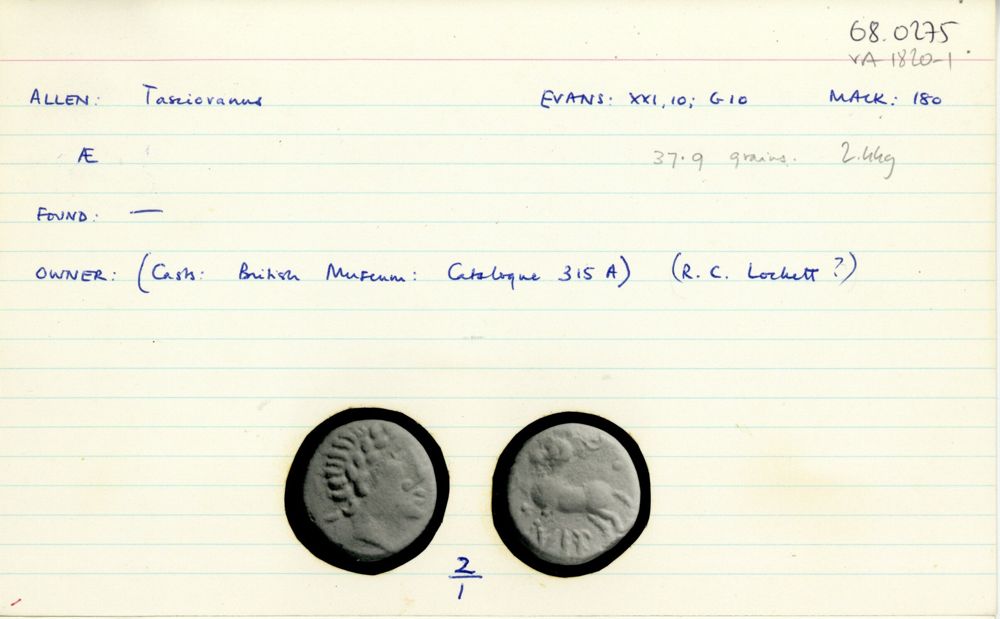 68.0275
VA 1820-1
ALLEN: Tasciovanus EVANS: XXI, 10; G10 MACK: 180
Æ 37.9 grains. 2.44g
FOUND: —
OWNER: (Casts: British Museum: Catalogue 315 A) (R. C. Lockett?)
2/1